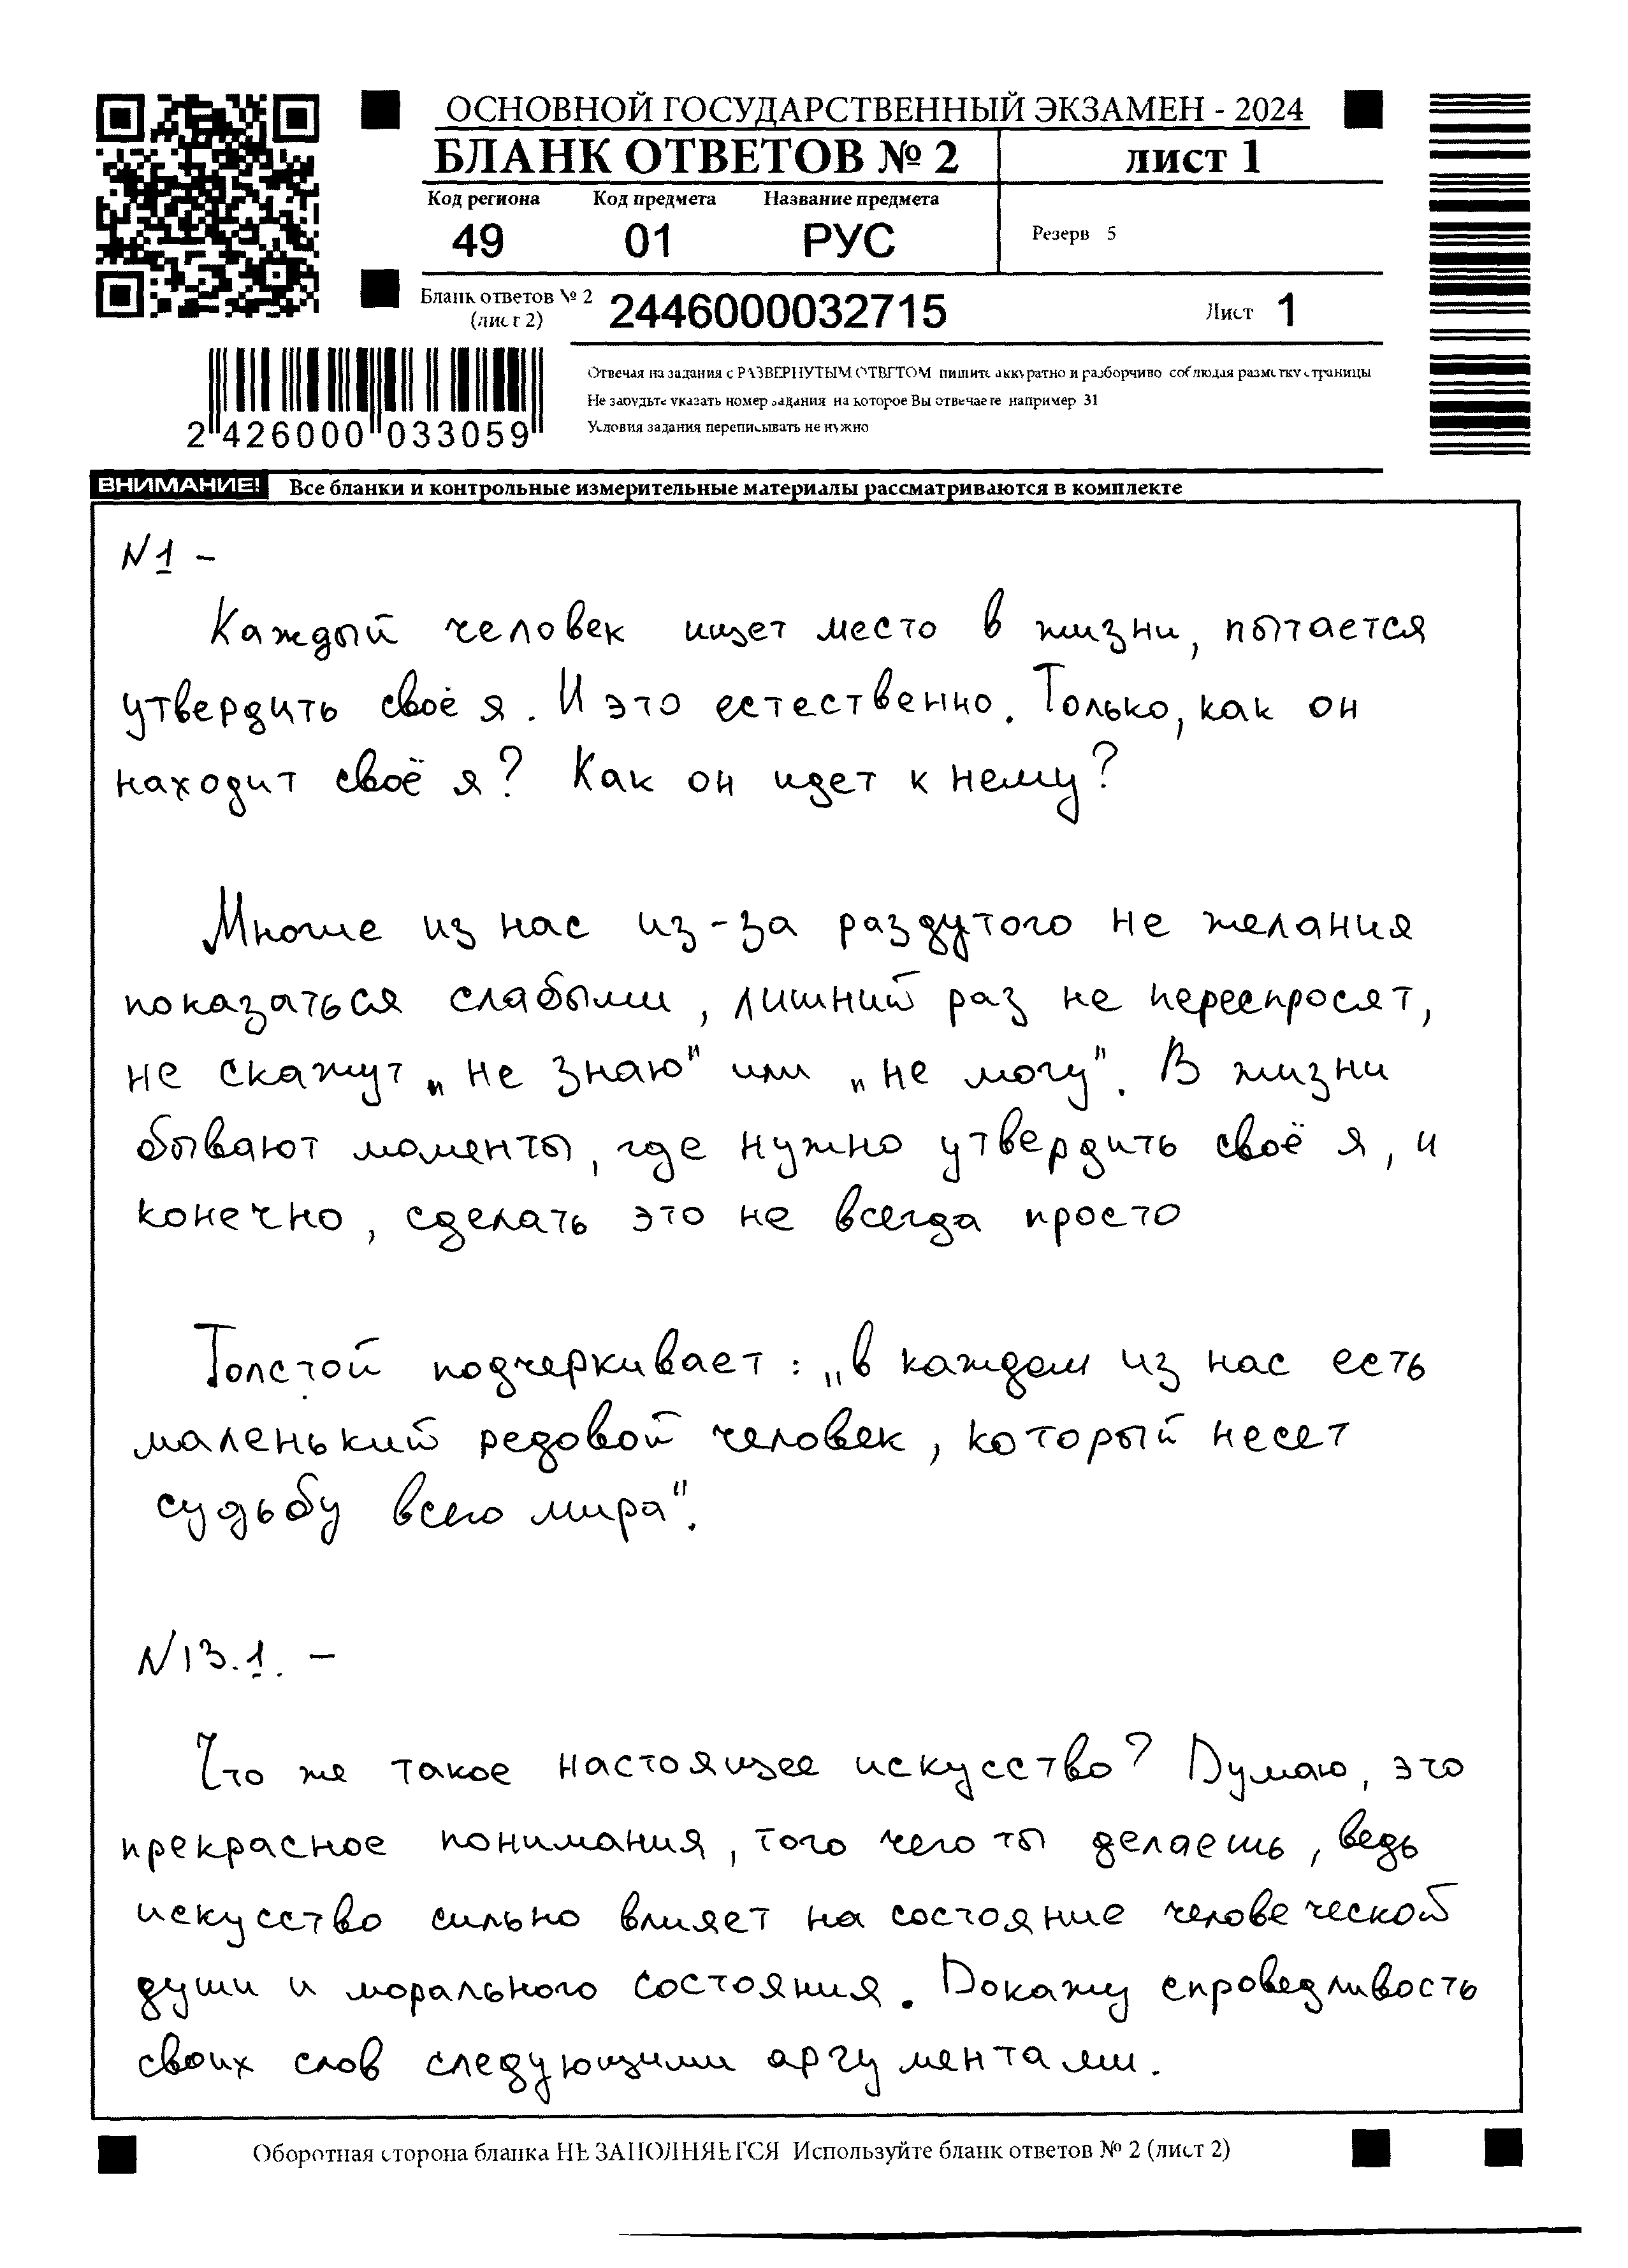 ОСНОВНОЙ ГОСУДАРСТВЕННЫЙ ЭКЗАМЕН - 2024
БЛАНК ОТВЕТОВ № 2
лист 1
Код региона Код предмета Название предмета
49 01 РУС
Резерв 5
Бланк ответов № 2
(лист 2)
2446000032715
Лист 1
2 426000 033059
Отвечая на задания с РАЗВЕРНУТЫМ ОТВЕТОМ пишите аккуратно и разборчиво соблюдая разметку страницы
Не забудьте указать номер задания на которое Вы отвечаете например 31
Условия задания переписывать не нужно
ВНИМАНИЕ! Все бланки и контрольные измерительные материалы рассматриваются в комплекте
N1 -
Каждый человек ищет место в жизни, пытается
утвердить своё я. И это естественно. Только, как он
находит своё я? Как он идет к нему?
Многие из нас из-за раздутого не желания
показаться слабыми, лишний раз не переспросят,
не скажут „не знаю" или „не могу". В жизни
бывают моменты, где нужно утвердить своё я, и
конечно, сделать это не всегда просто
Толстой подчеркивает: „в каждом из нас есть
маленький редовой человек, который несет
судьбу всего мира".
N13.1. -
Что же такое настоящее искусство? Думаю, это
прекрасное понимания, того чего ты делаешь, ведь
искусство сильно влияет на состояние человеческой
души и морального состояния. Докажу справедливость
своих слов следующими аргументами.
Оборотная сторона бланка НЕ ЗАПОЛНЯЕТСЯ Используйте бланк ответов № 2 (лист 2)